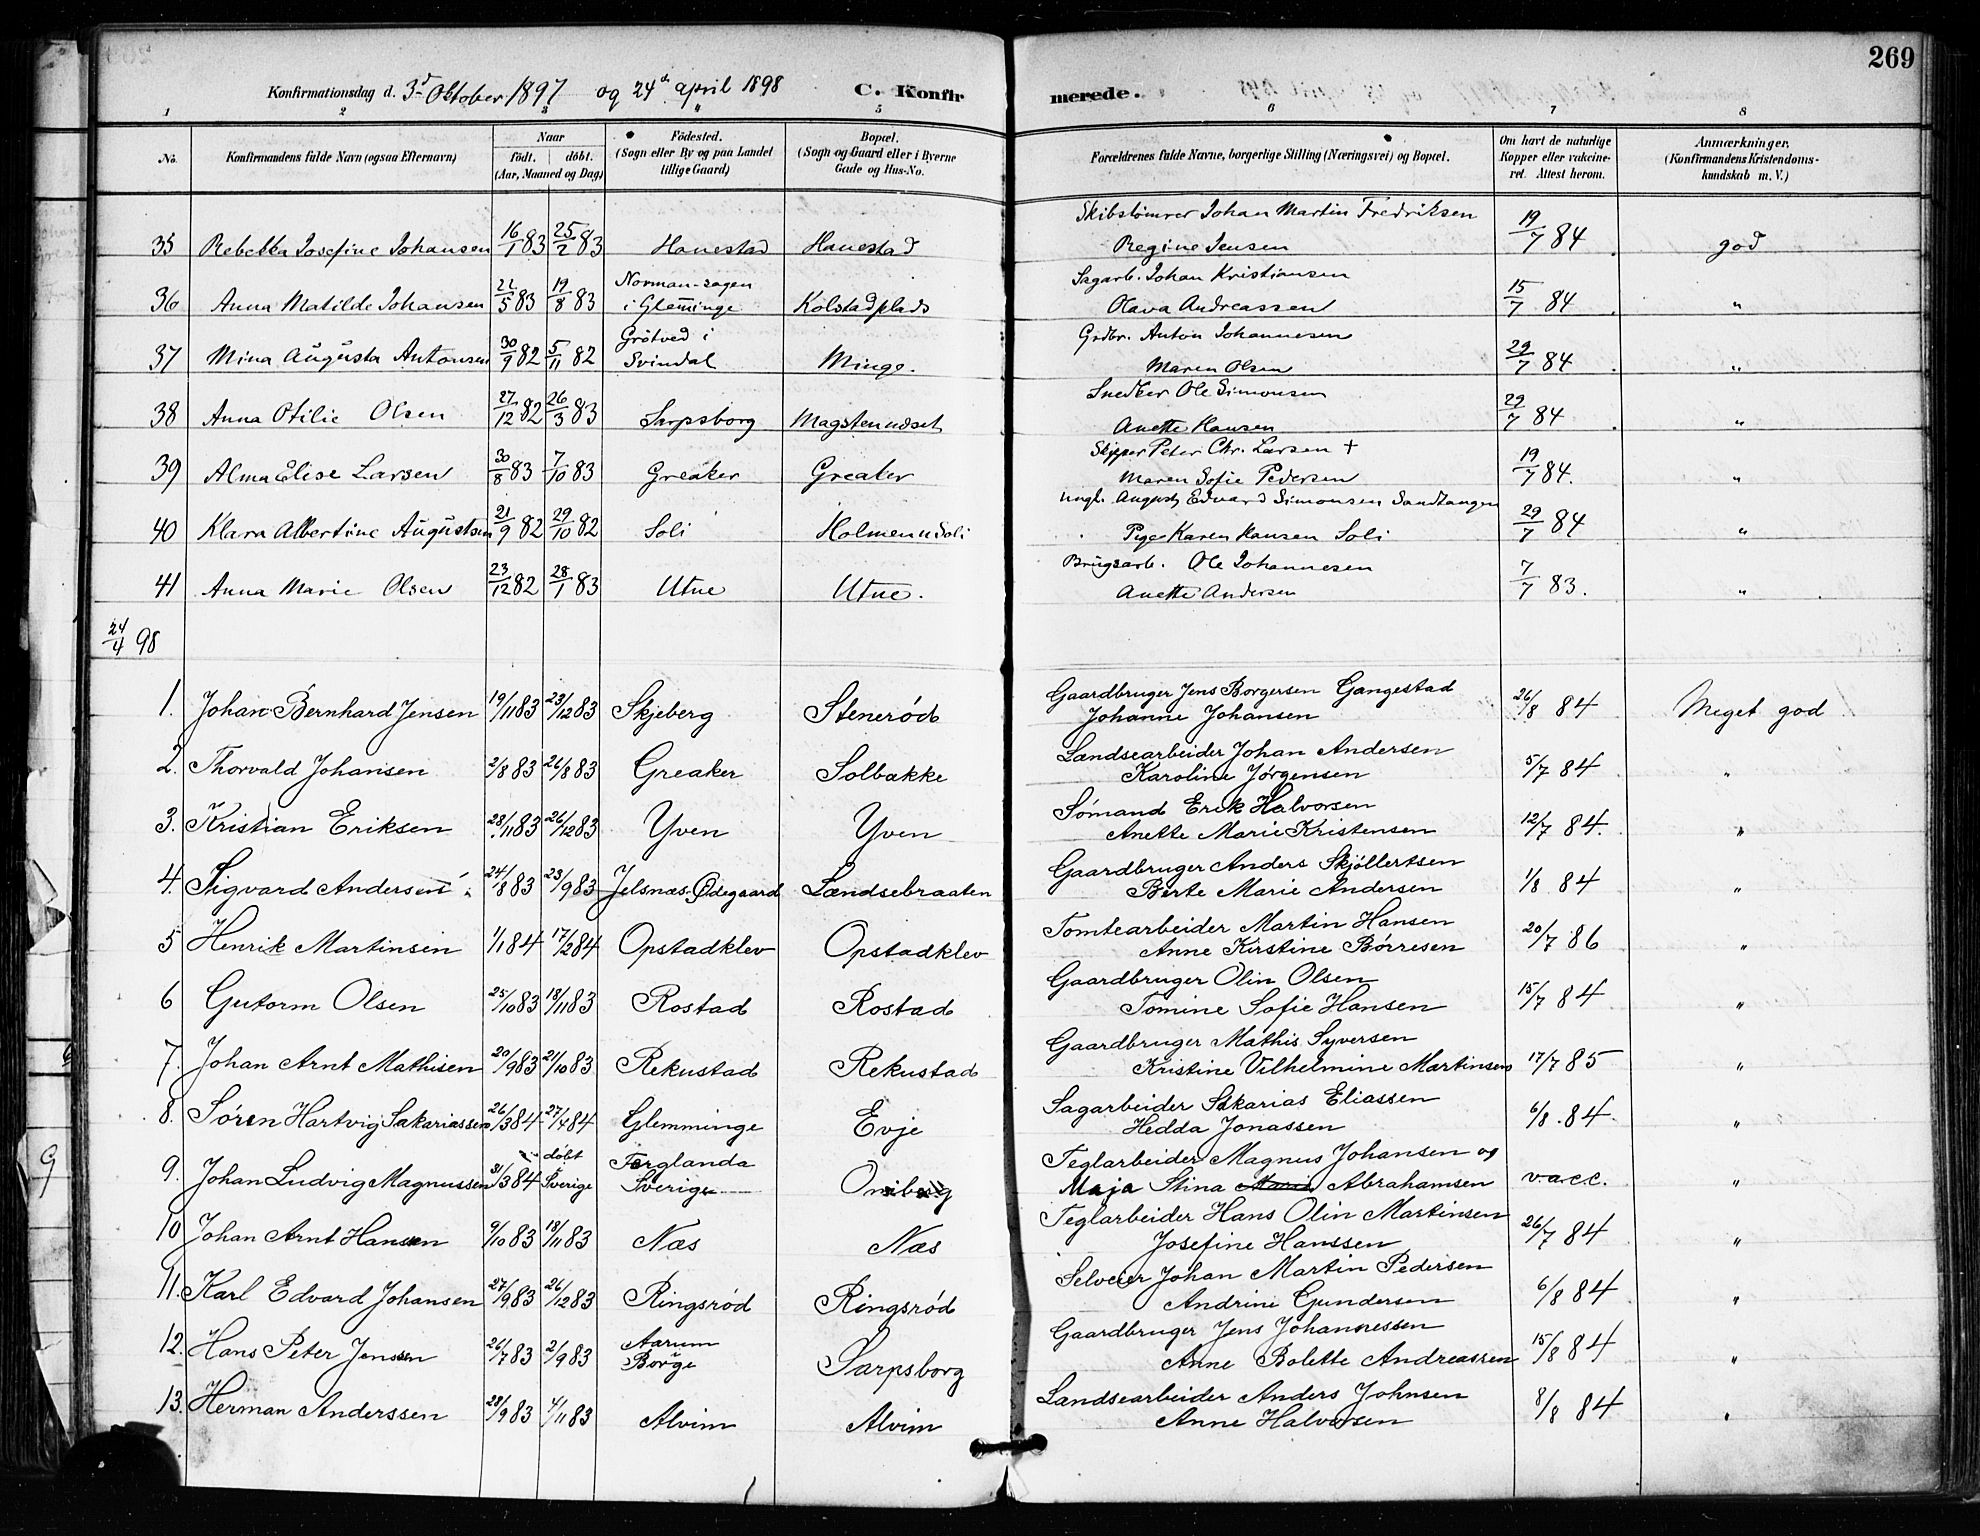 269
Konfirmationsdag d. 3d Oktober 1897 og 24de april 1898 C. Konfirmerede.
1 2 3 4 5 6 7 8
No. Konfirmandens fulde Navn (ogsaa Efternavn) Naar födt. döbt. (Aar, Maaned og Dag) Födested. (Sogn eller By og paa Landet tillige Gaard) Bopæl. (Sogn og Gaard eller i Byerne Gade og Hus-No. Forældrenes fulde Navne, borgerlige Stilling (Næringsvei) og Bopæl. Om havt de naturlige Kopper eller vakcineret. Attest herom. Anmærkninger. (Konfirmandens Kristendomskundskab m. V.)
Skibstømrer Johan Martin Fredriksen
35 Rebekka Josefine Johansen 16/1 83 25/2 83 Hanestad Hanestad Regine Jensen 19/7 84 god
Norman-sagen Sagarb. Johan Kristiansen
36 Anna Matilde Johansen 22/5 83 19/8 83 i Glemminge Kolstadplads Olava Andreassen 15/7 84 "
Grötved i Grdbr. Anton Johannesen
37 Mina Augusta Antonsen 30/9 82 5/11 82 Svindal Minge. Maren Olsen 29/7 84 "
Snedker Ole Simonsen
38 Anna Otilie Olsen 27/12 82 26/3 83 Sarpsborg Magstenudset Anette Hansen 29/7 84 "
Skipper Peter Chr. Larsen +
39 Alma Elise Larsen 30/8 83 7/10 83 Greaker Greaker Maren Sofie Pedersen 19/7 84. "
Ungk. August Edvard Simonsen Sandtangen
40 Klara Albertine Augustsen 21/9 82 29/10 82 Soli Holmen u Soli Pige Karen Hansen Soli 29/7 84 "
Brugsarb. Ole Johannesen
41 Anna Marie Olsen 23/12 82 28/1 83 Utne Utne. Anette Andersen 7/7 83. "
24/4 98
Gaardbruger Jens Borgersen Gangestad
1. Johan Bernhard Jensen 19/11 83 23/12 83 Skjeberg Stenerød Johanne Johansen 26/8 84 Meget god
Lændsearbeider Johan Andersen
2. Thorvald Johansen 2/8 83 26/8 83 Greaker Solbakke Karoline Jørgensen 5/7 84 "
Sömand Erik Halvorsen
3. Kristian Eriksen 28/11 83 26/12 83 Yven Yven Anette Marie Kristensen 12/7 84. "
Gaardbruger Anders Skjöllertsen
4. Sigvard Andersen 24/8 83 23/9 83 Jelsnæs-Ødegaard Lændsebraaten Berte Marie Andersen 1/8 84 "
Tomtearbeider Martin Hansen
5 Henrik Martinsen 1/1 84 17/2 84 Opstadklev Opstadklev Anne Kirstine Børresen 20/7 86 "
Gaardbruger Olin Olsen
6 Gutorm Olsen 25/10 83 18/11 83 Rostad Rostad Tomine Sofie Hansen 15/7 84 "
Gaardbruger Mathis Syversen
7. Johan Arnt Mathisen 20/9 83 21/10 83 Rekustad Rekustad Kristine Vilhelmine Martinsen 17/7 85 "
Sagarbeider Sakarias Eliassen
8. Søren Hartvig Sakariassen 26/3 84 27/4 84 Glemminge Evje Hedda Jonassen 6/8. 84 "
döbt Færglanda Teglarbeider Magnus Johansen og
9. Johan Ludvig Magnussen 31/3 84 Sverige Sverige Maja Stina Abrahamsen vacc. "
Teglarbeider Hans Olin Martinsen
10 Johan Arnt Hansen 9/10 83 18/11 83 Næs Næs Josefine Hanssen 26/7 84 "
Selveier Johan Martin Pedersen
11. Karl Edvard Johansen 27/9 83 26/12 83 Ringsrød Ringsrød Andrine Gundersen 6/8 84 "
Aarum Gaardbruger Jens Johannessen
12. Hans Peter Jensen 26/7 83 2/9 83 Borge Sarpsborg Anne Bolette Andreassen 15/8 84 "
Landsearbeider Anders Johnsen
13. Herman Anderssen 28/9 83 4/11 83 Alvim Alvim Anne Halvorsen 8/8 84 "
9